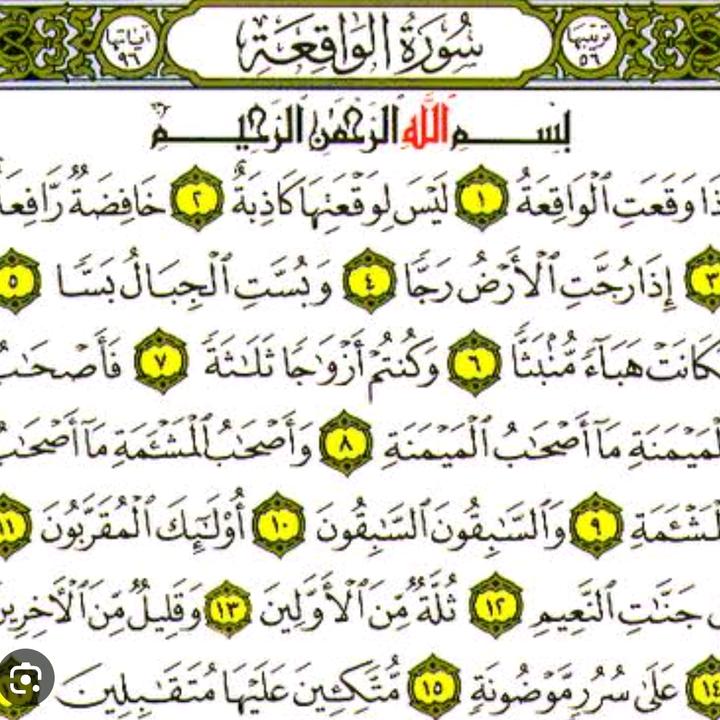 آياتها ٩٦ سُورَةُ الوَاقِعَة ترتيبها ٥٦
بِسْمِ اللَّهِ الرَّحْمَٰنِ الرَّحِيمِ
ذَا وَقَعَتِ ٱلْوَاقِعَةُ ١ لَيْسَ لِوَقْعَتِهَا كَاذِبَةٌ ٢ خَافِضَةٌ رَّافِعَةٌ
٣ إِذَا رُجَّتِ ٱلْأَرْضُ رَجًّا ٤ وَبُسَّتِ ٱلْجِبَالُ بَسًّا ٥
فَكَانَتْ هَبَآءً مُّنۢبَثًّا ٦ وَكُنتُمْ أَزْوَٰجًا ثَلَٰثَةً ٧ فَأَصْحَٰبُ
ٱلْمَيْمَنَةِ مَآ أَصْحَٰبُ ٱلْمَيْمَنَةِ ٨ وَأَصْحَٰبُ ٱلْمَشْـَٔمَةِ مَآ أَصْحَٰبُ
ٱلْمَشْـَٔمَةِ ٩ وَٱلسَّٰبِقُونَ ٱلسَّٰبِقُونَ ١٠ أُو۟لَٰٓئِكَ ٱلْمُقَرَّبُونَ ١١
جَنَّٰتِ ٱلنَّعِيمِ ١٢ ثُلَّةٌ مِّنَ ٱلْأَوَّلِينَ ١٣ وَقَلِيلٌ مِّنَ ٱلْأَخِرِينَ
١٤ عَلَىٰ سُرُرٍ مَّوْضُونَةٍ ١٥ مُّتَّكِـِٔينَ عَلَيْهَا مُتَقَٰبِلِينَ